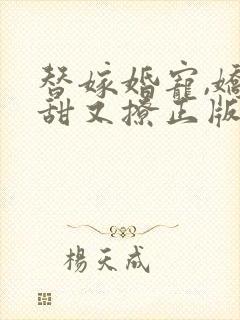 替嫁婚寵,嬌
甜又撩正版
楊天成